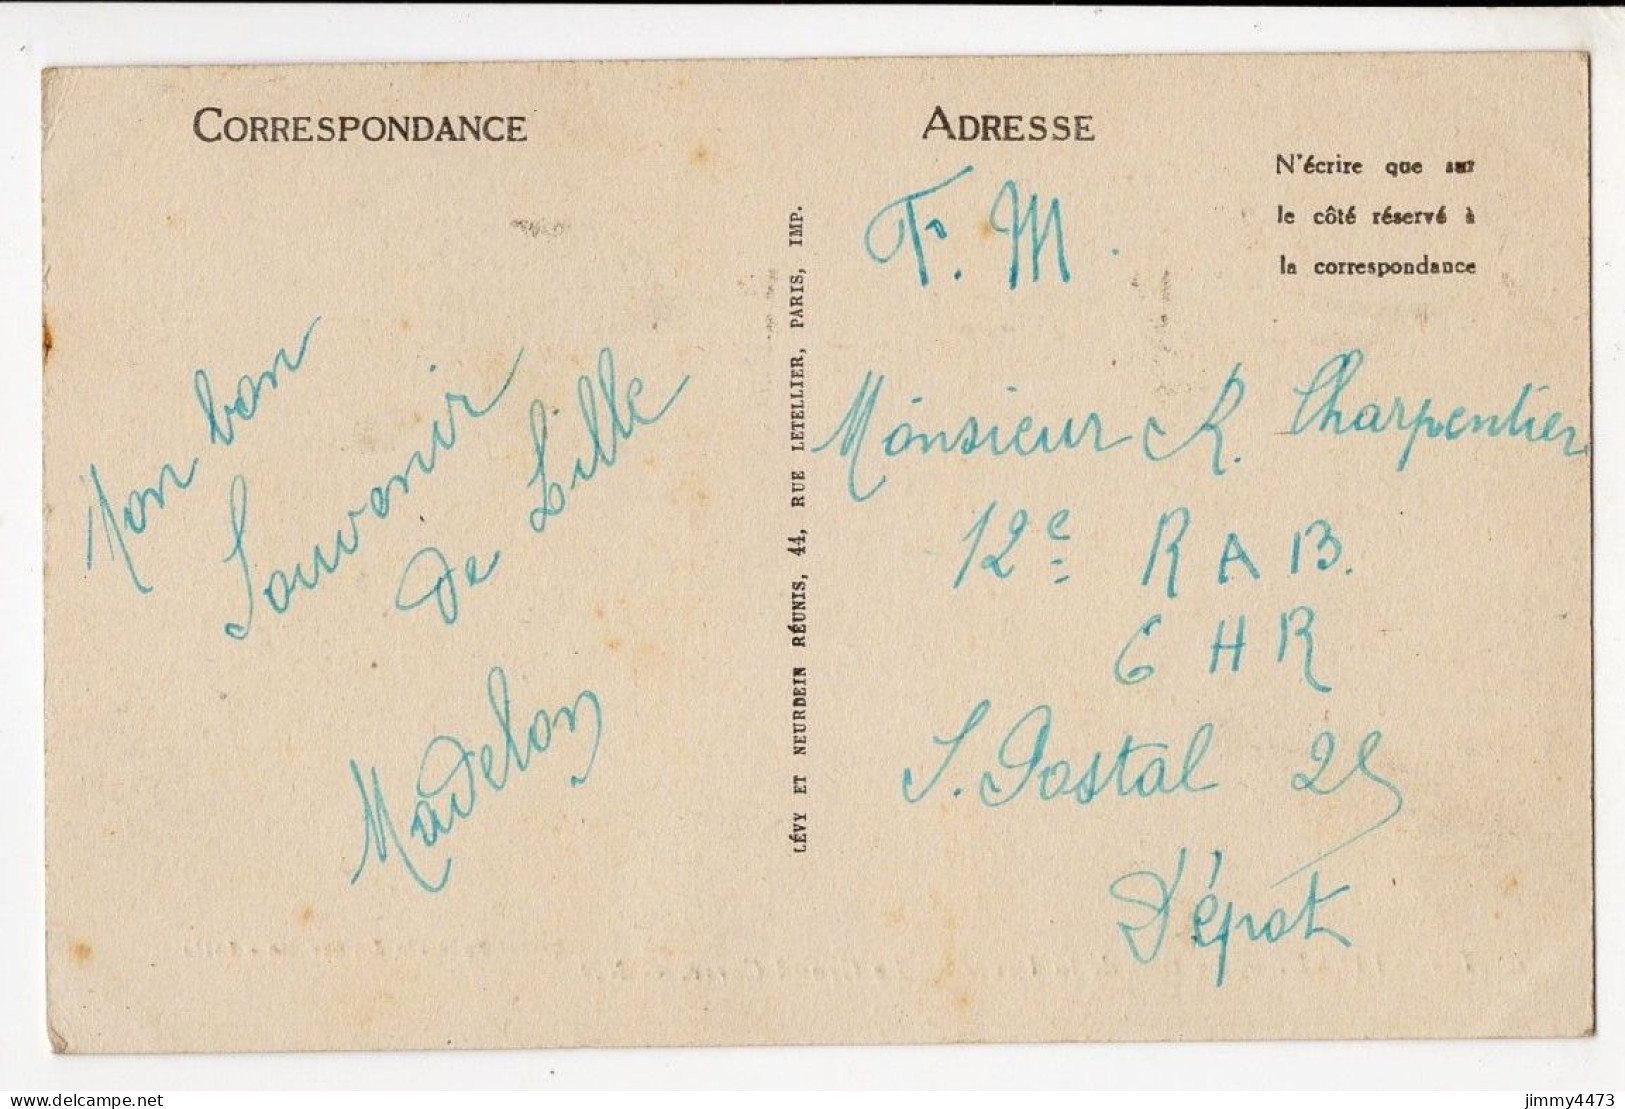 CORRESPONDANCE
Mon bon
Souvenir
de Lille
Madelon
LÉVY ET NEURDEIN RÉUNIS, 44, RUE LETELLIER, PARIS, IMP.
ADRESSE
N'écrire que sur
le côté réservé à
la correspondance
F. M.
Monsieur R. Charpentier
12e R A B.
C H R
S. Postal 25
Dépôt
delcampe.net
jimmy4473